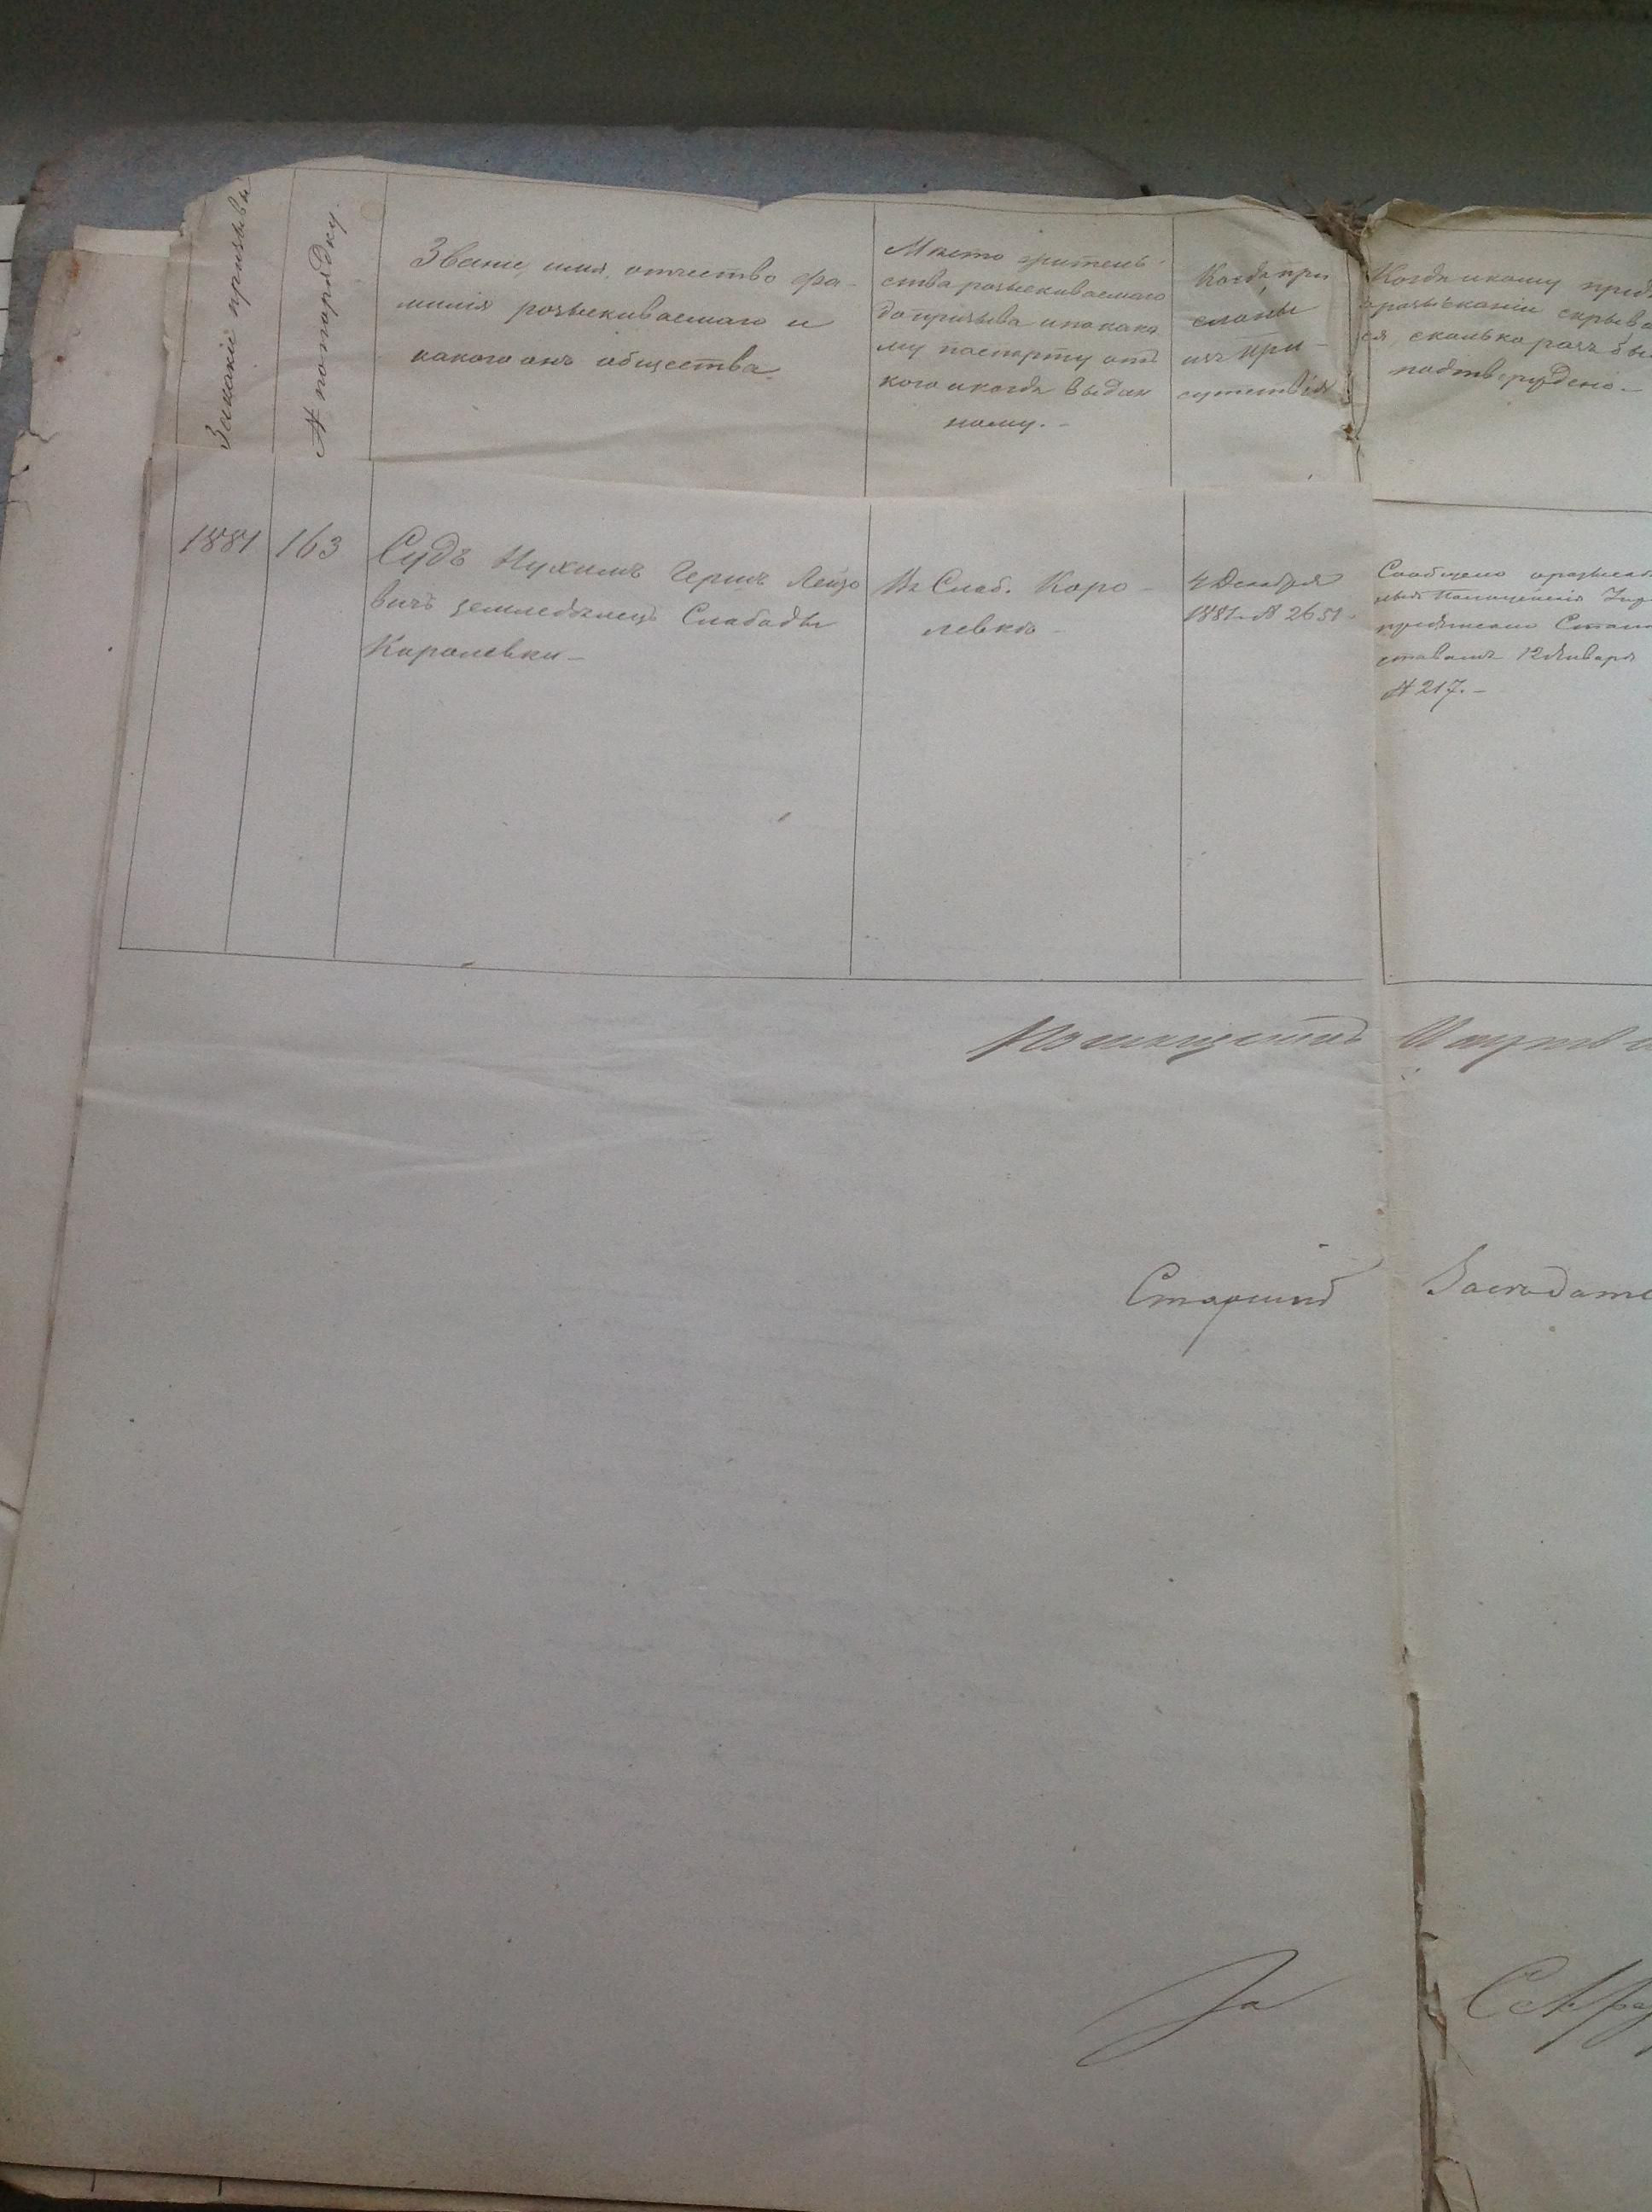 За какие призывы
№ по порядку.
Звание, имя, отчество фа-
милия розыскиваемаго и
какого онъ общества
Место житель-
ства розыскиваемаго
до призыва и по како
му паспорту отъ
кого и когда выдан
ному. -
Когда при
сланы
изъ при-
сутствія
Когда и кому пред
о розысканіи скрыва
ся, сколько разъ бы
подтверждено. -
1881
163
Судъ Нухимъ Гершъ Лейзо
вичъ земледѣлецъ Слабоды
Каролевки -
Въ Слоб. Коро-
левкѣ -
4 Декабря
1881. № 2651.
Сообщено
12 Января
№ 217. -
Старшій
Заседате
За